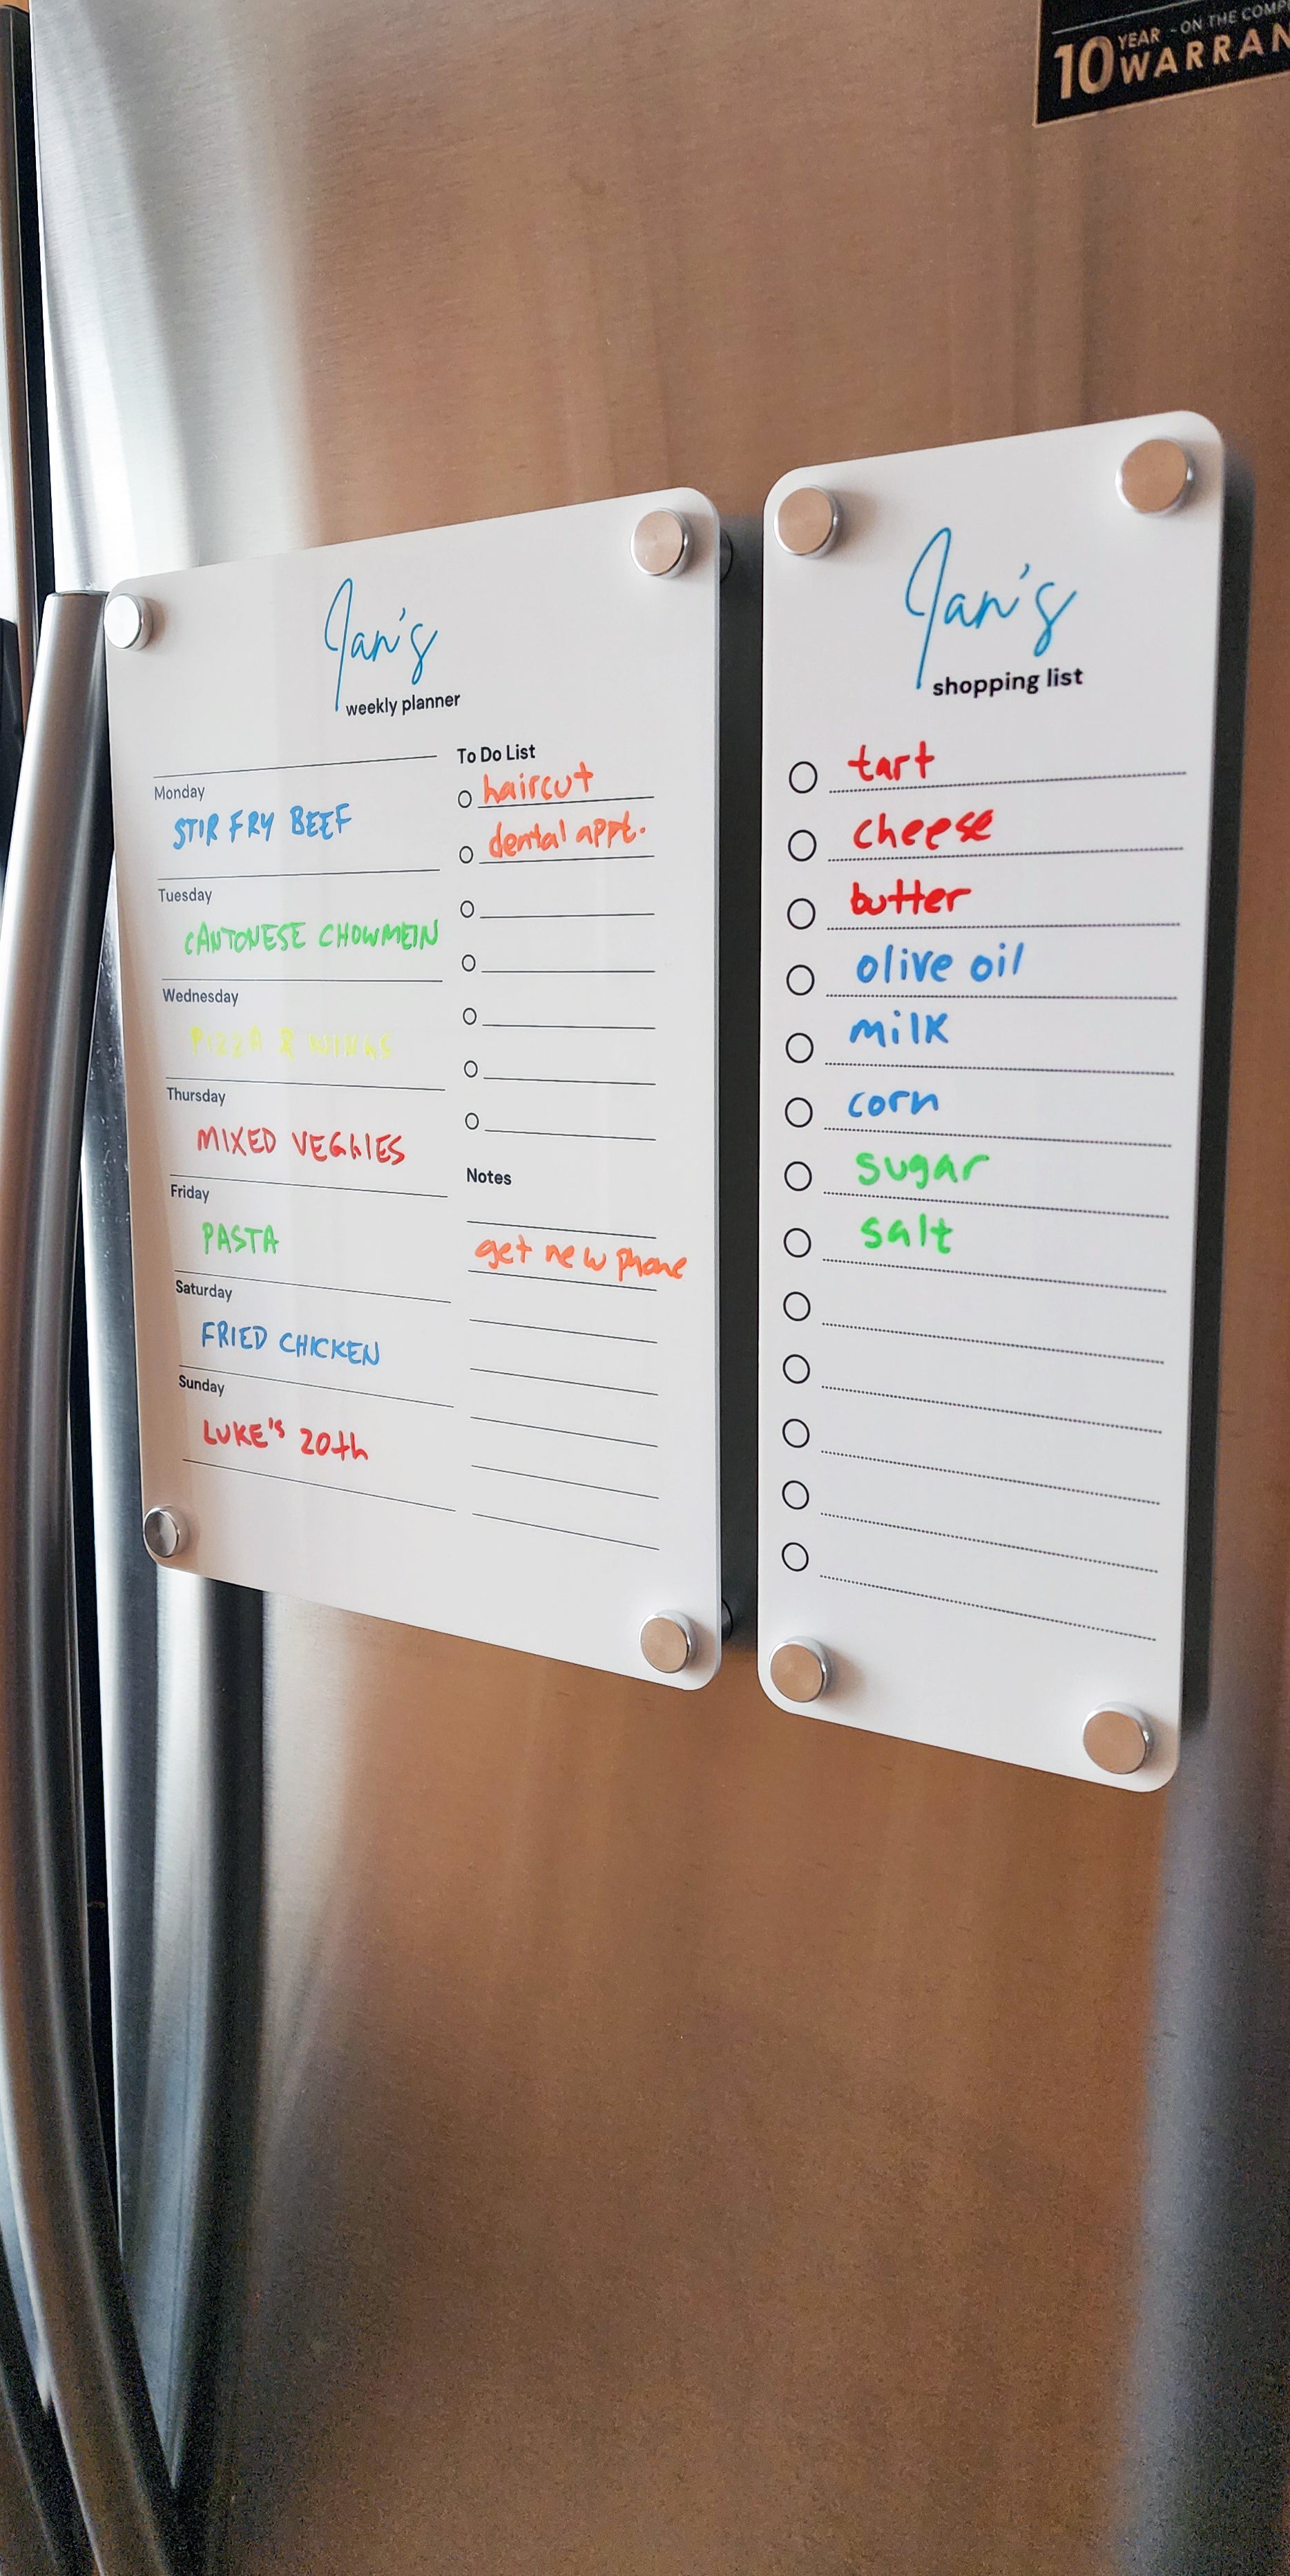 10 YEAR - ON THE COMP
WARRAN
Jan's
weekly planner
Monday
STIR FRY BEEF
Tuesday
CANTONESE CHOWMEIN
Wednesday
PIZZA & WINGS
Thursday
MIXED VEGGIES
Friday
PASTA
Saturday
FRIED CHICKEN
Sunday
LUKE'S 20th
To Do List
haircut
dental appt.
Notes
get new phone
Jan's
shopping list
tart
cheese
butter
olive oil
milk
corn
sugar
salt